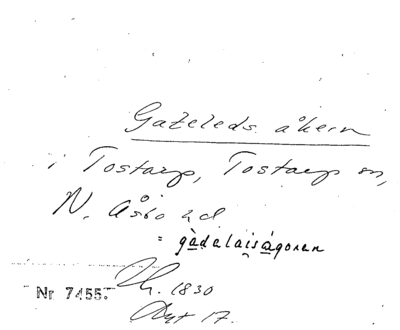 Gateleds åkern
i Tostarp, Tostarp sn,
N. Åsbo hd
= gàdalaiságoran
Nr 7455.
Th. 1830
17.